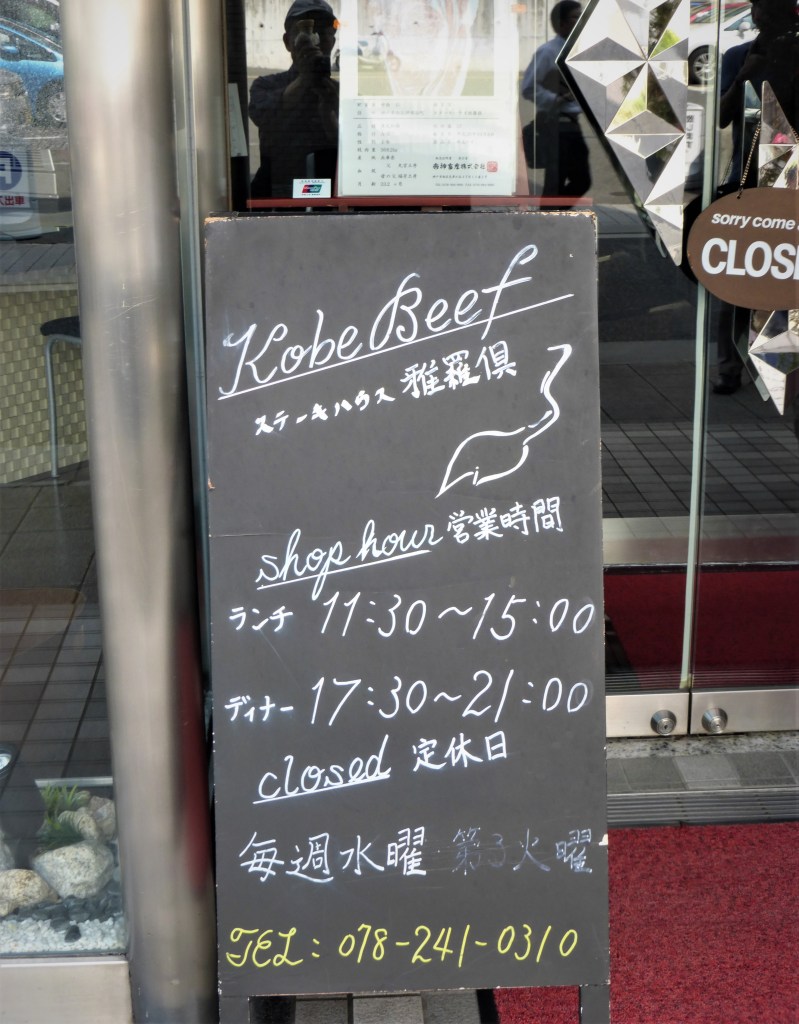 Kobe Beef
ステーキハウス 雅羅倶
shop hour 営業時間
ランチ 11:30〜15:00
ディナー 17:30〜21:00
closed 定休日
毎週水曜 第3火曜
TEL: 078-241-0310
sorry come
CLOS